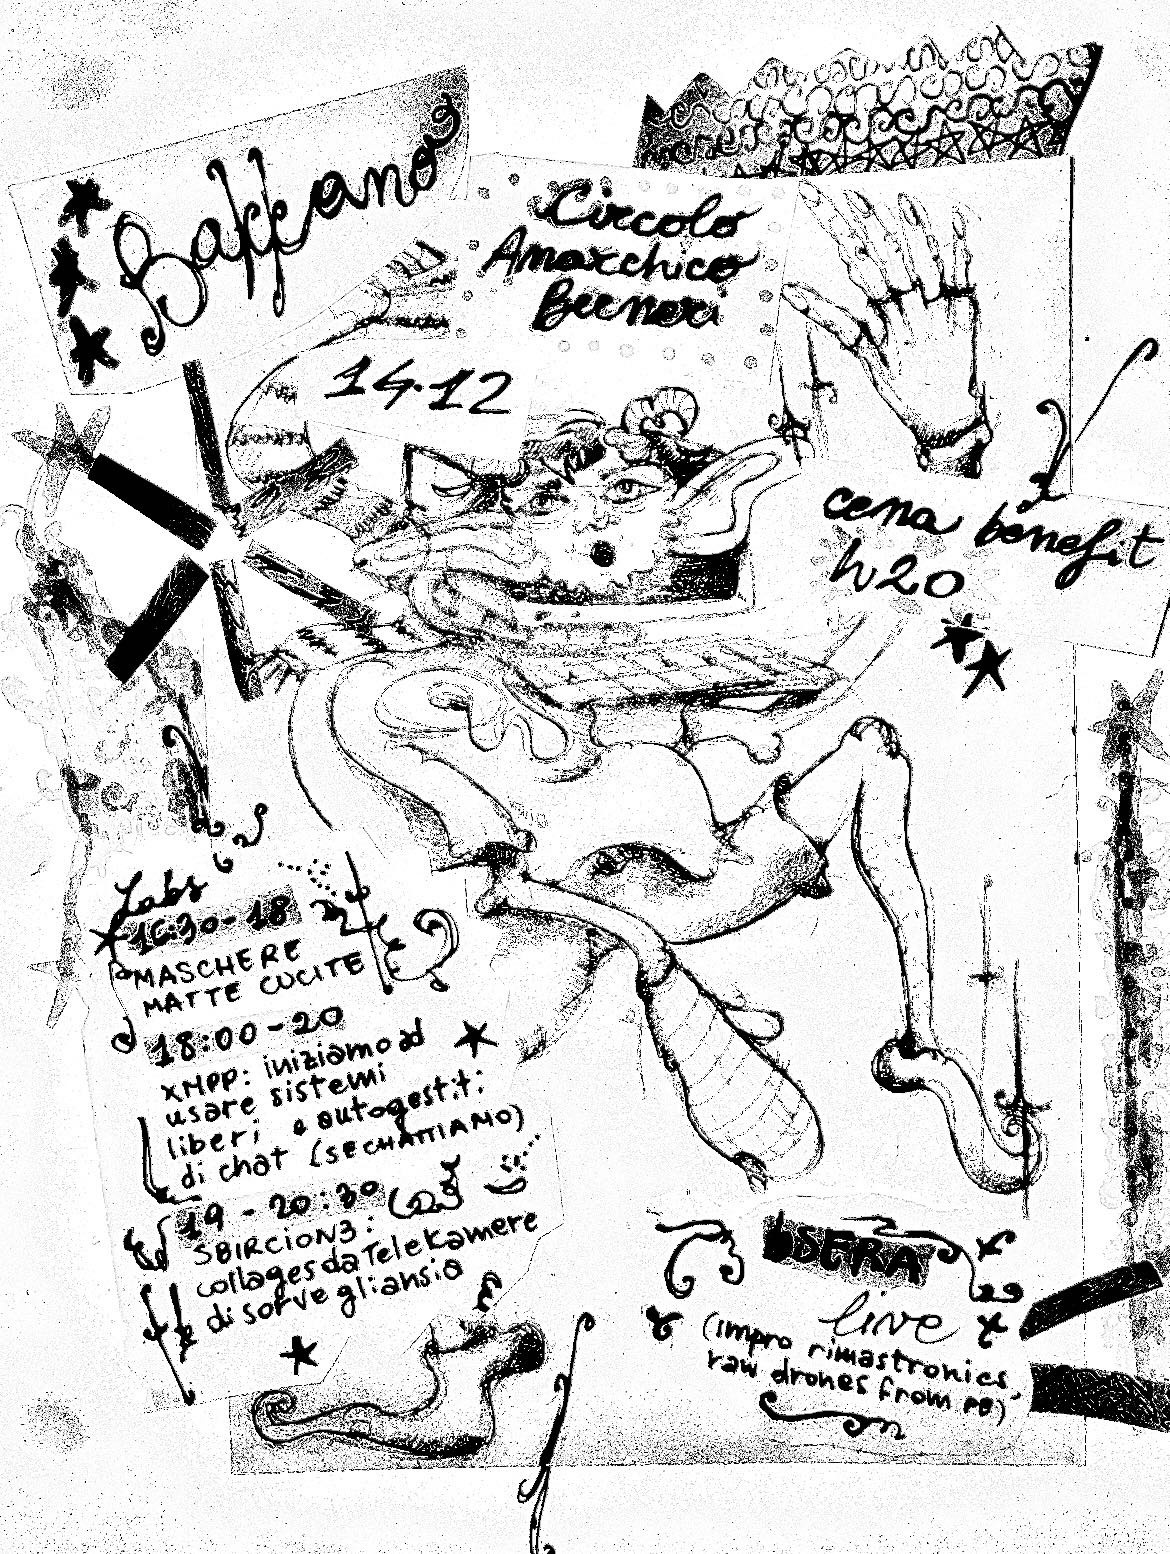 Baffano
Circolo
Anarchico
Berneri
14.12
cena benefit
h20
Labs
16:30-18
MASCHERE
MATTE CUCITE
18:00-20
XMPP: iniziamo ad
usare sistemi
liberi e autogestiti
di chat (SECHATTIAMO)
19 - 20:30
SBIRCION3:
collages da Telekamere
di sorveglianzia
live
(impro rimastronics,
raw drones from PE)